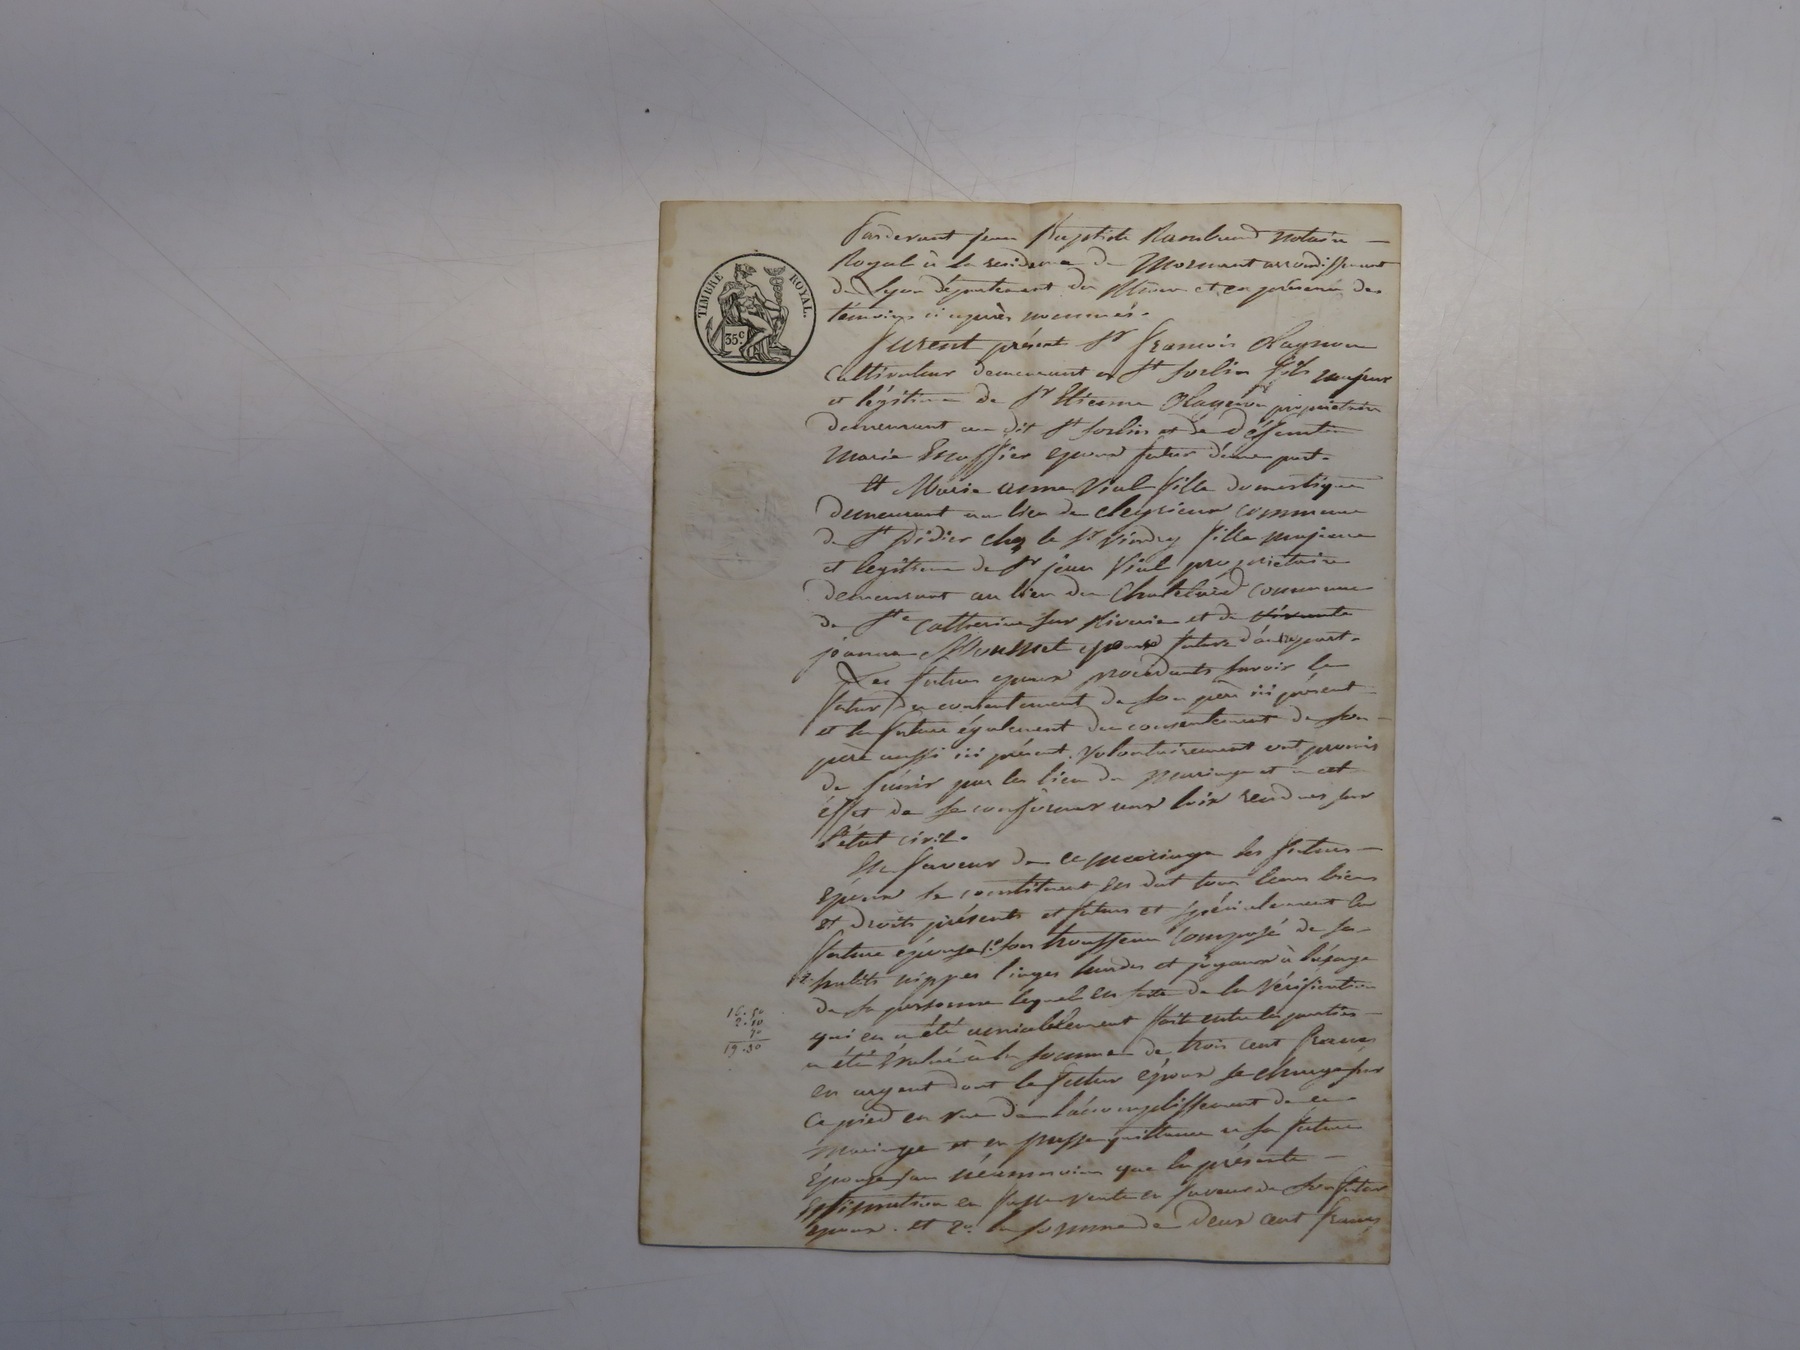 TIMBRE ROYAL.
35c
Pardevant jean Baptiste Rambaud notaire —
Royal à la residence de Mornant arrondissement
de Lyon département du Rhône et en présence des
témoins ci après nommés.
furent présent Sr françois Olagnon
Cultivateur demeurant à St Sorlin fils majeur
et légitime de Sr Etienne Olagnon propriétaire
demeurant au dit St Sorlin et de Défunte
Marie Escoffier epoux futur d'une part.
Et Marie anne Vial fille domestique
demeurant au lieu de commune
de St Didier chez le Sr fille majeure
et legitime de Sr jean Vial propriétaire
demeurant au lieu du Chatelard commune
de Ste Catherine sur Riverie et de vivante
jeanne epouse future d'autre part.
Les futurs epoux procédants savoir le
futur du consentement de son père ici présent
et la future également du consentement de son —
père aussi ici présent, volontairement ont promis
de s'unir par les lien du mariage et à cet
éffet de se conformer aux loix rendues sur
l'état civil.
En faveur de ce mariage les futurs —
époux se constituent en dot tous leurs biens
et droits présents et futurs et spécialement la
future épouse 1o. son trousseau composé de ses
habits nippes linges hardes et joyaux à l'usage
de sa personne lequel en suite de la vérification
qui en a été amicalement faite entre les parties —
a été évalué à la somme de trois cent francs
en argent dont le futur époux se charge sur
ce pied en vue de l'accomplissement de ce
mariage et en passe quittance à sa future
épouse sans néanmoins que la présente —
Estimation en fasse vente en faveur de son futur
époux. et 2o. la somme de deux cent francs
16.50
2.10
70
19.30